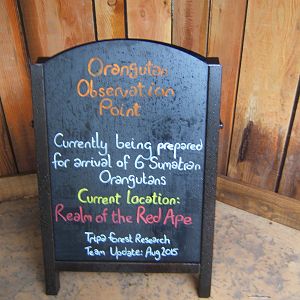 Orangutan
Observation
Point
Currently being prepared
for arrival of 6 Sumatran
Orangutans
Current location:
Realm of the Red Ape
Tripa Forest Research
Team Update: Aug 2015